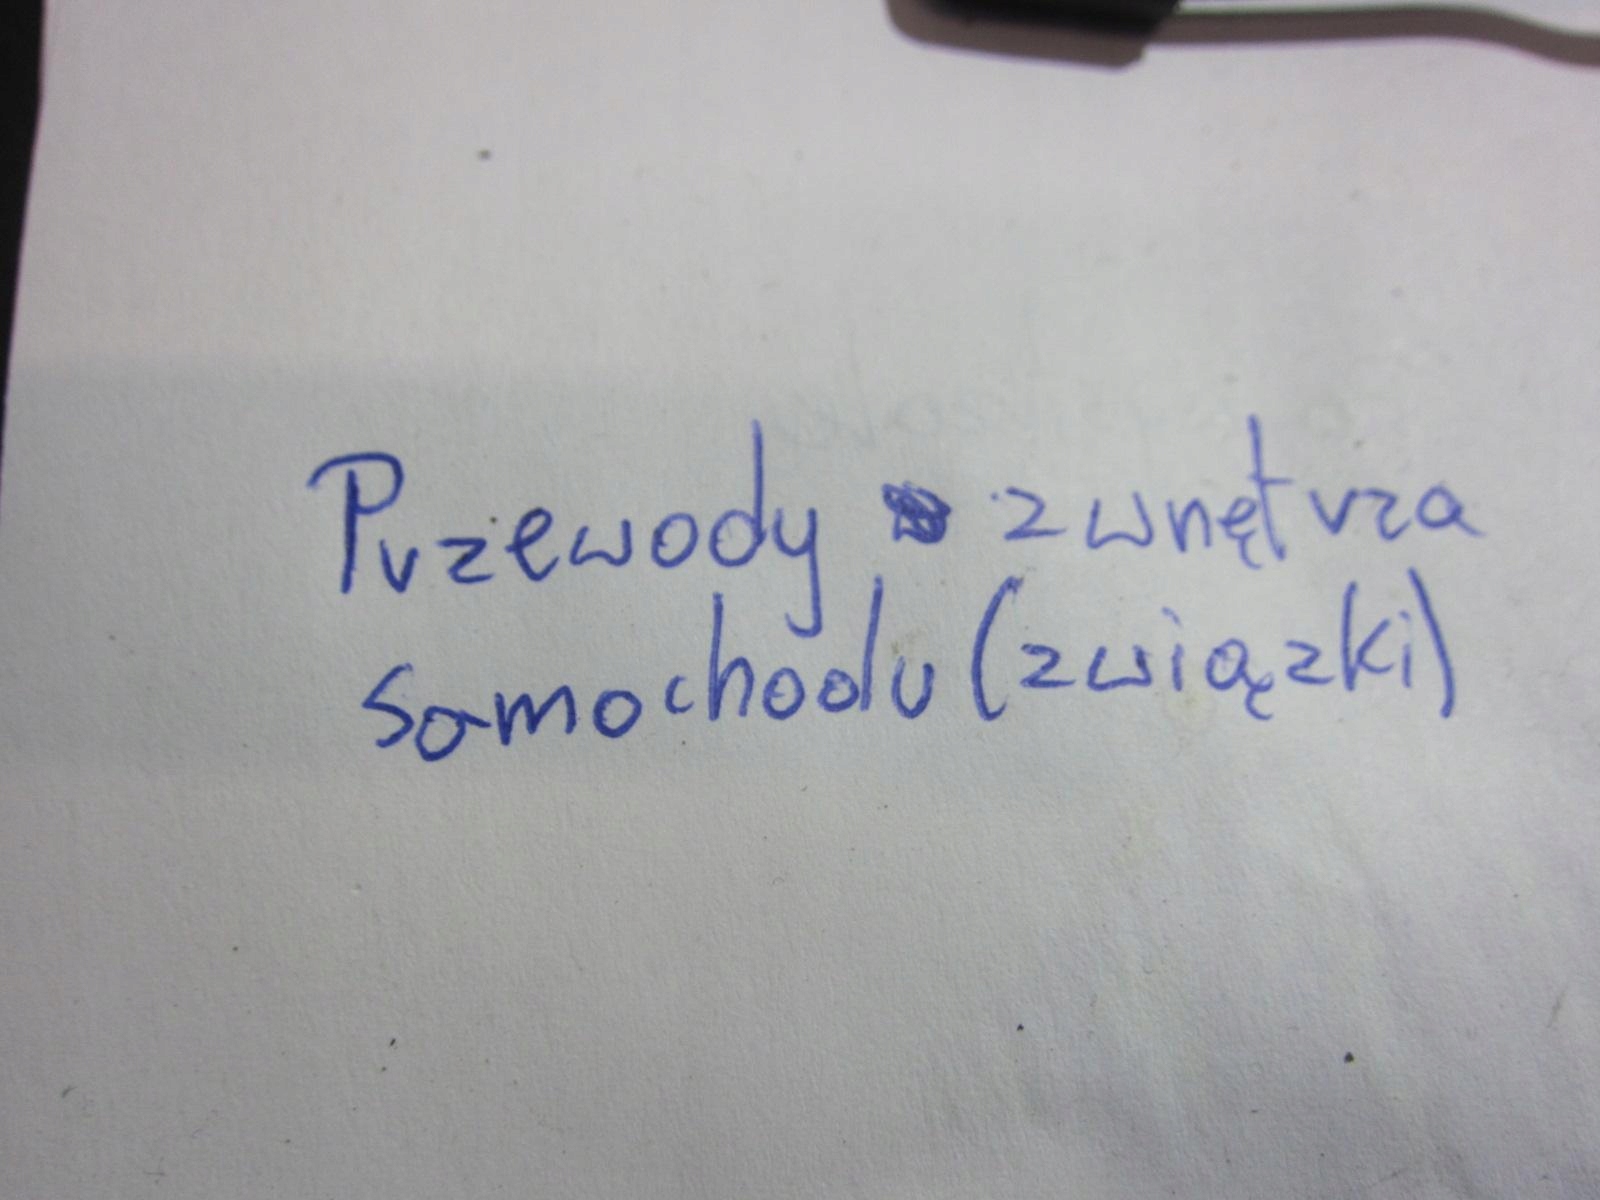 Przewody z wnętrza
samochodu (związki)